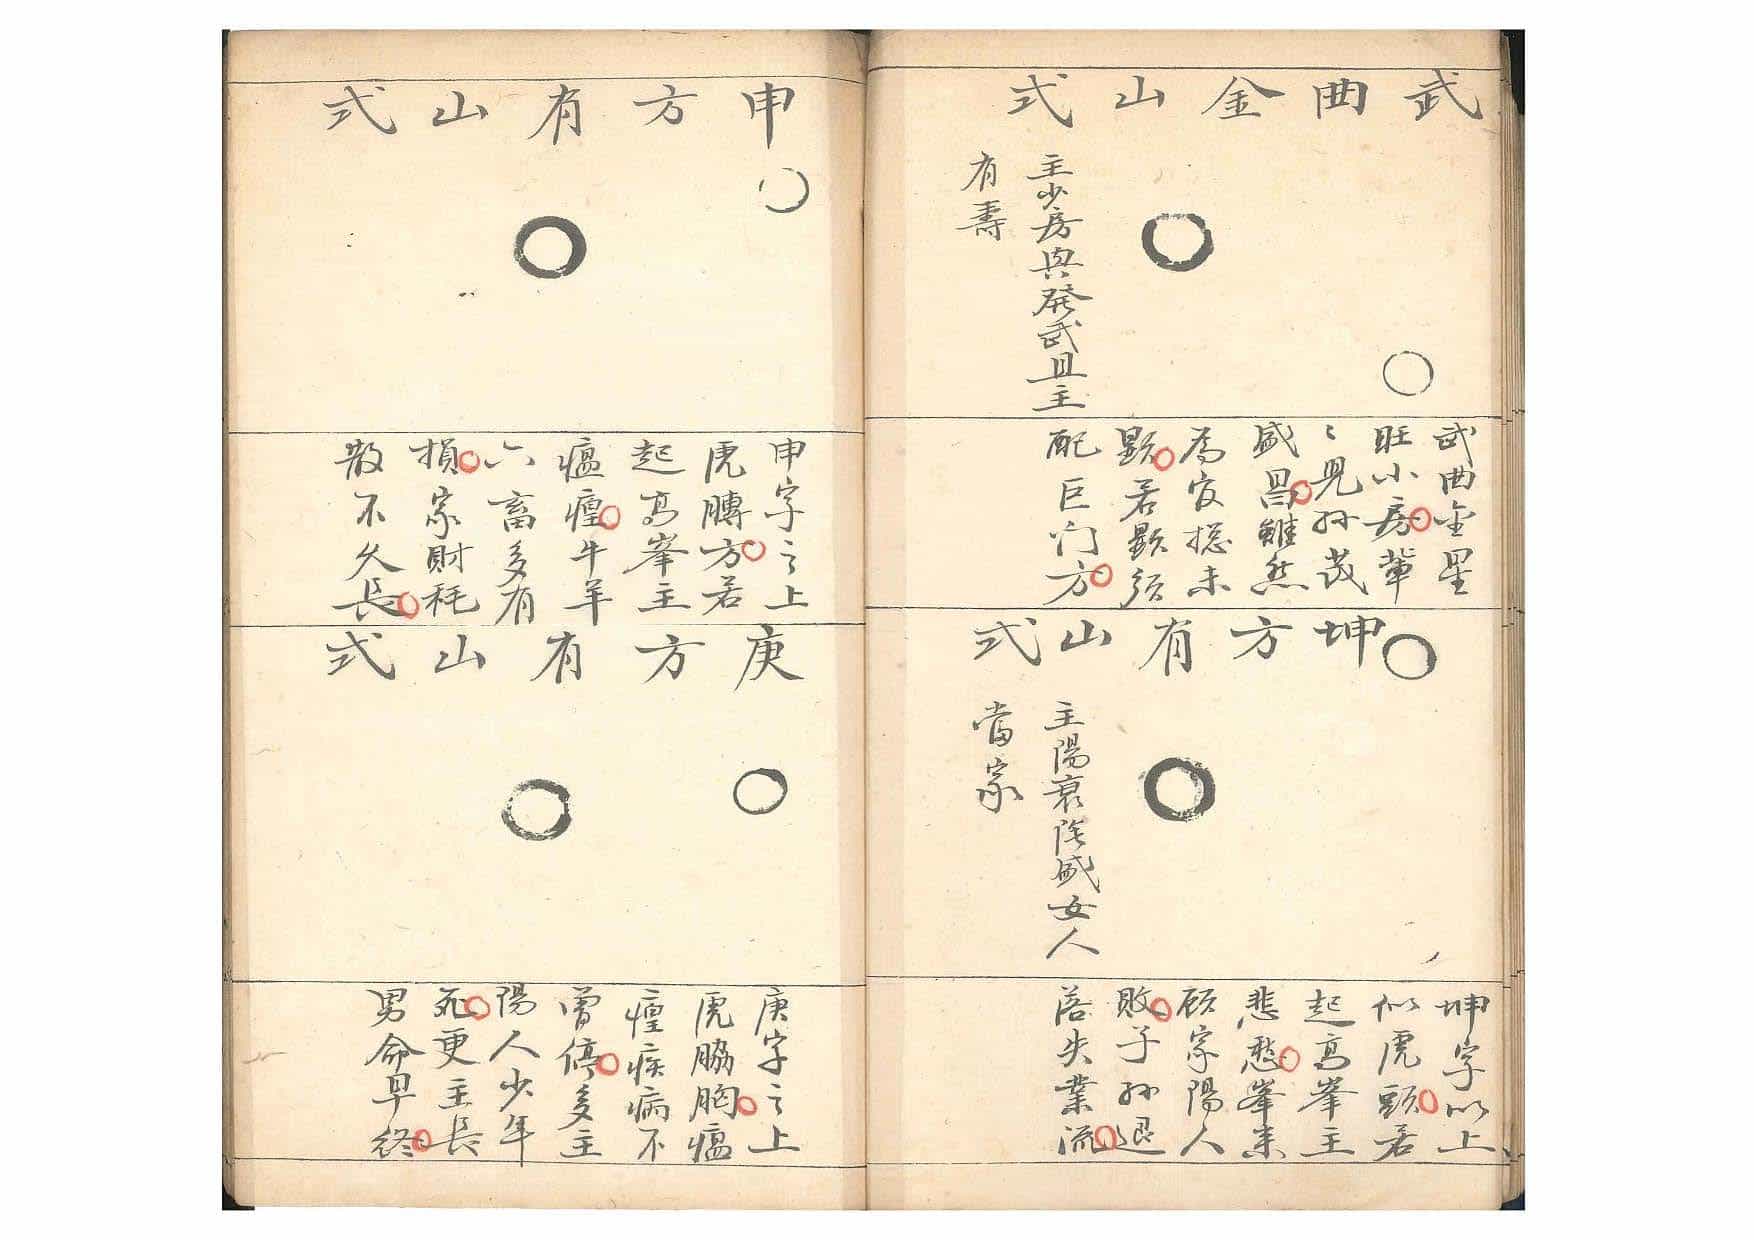 武曲金山式
主少房興發武且主
有壽
武曲金星
旺小房輩
〻見孙茂
盛昌雖然
爲官搃未
顕若顕須
配巨门方
坤方有山式
主陽衰陰盛女人
當家
坤字以上
似虎頭若
起高峯主
悲愁峯来
顾家陽人
敗子孙退
落失業流
申方有山式
申字之上
虎膊方若
起高峯主
瘟瘽牛羊
六畜多有
損家財耗
散不久長
庚方有山式
庚字之上
虎脇胸瘟
瘽疾病不
曾停多主
陽人少年
死更主長
男命早终